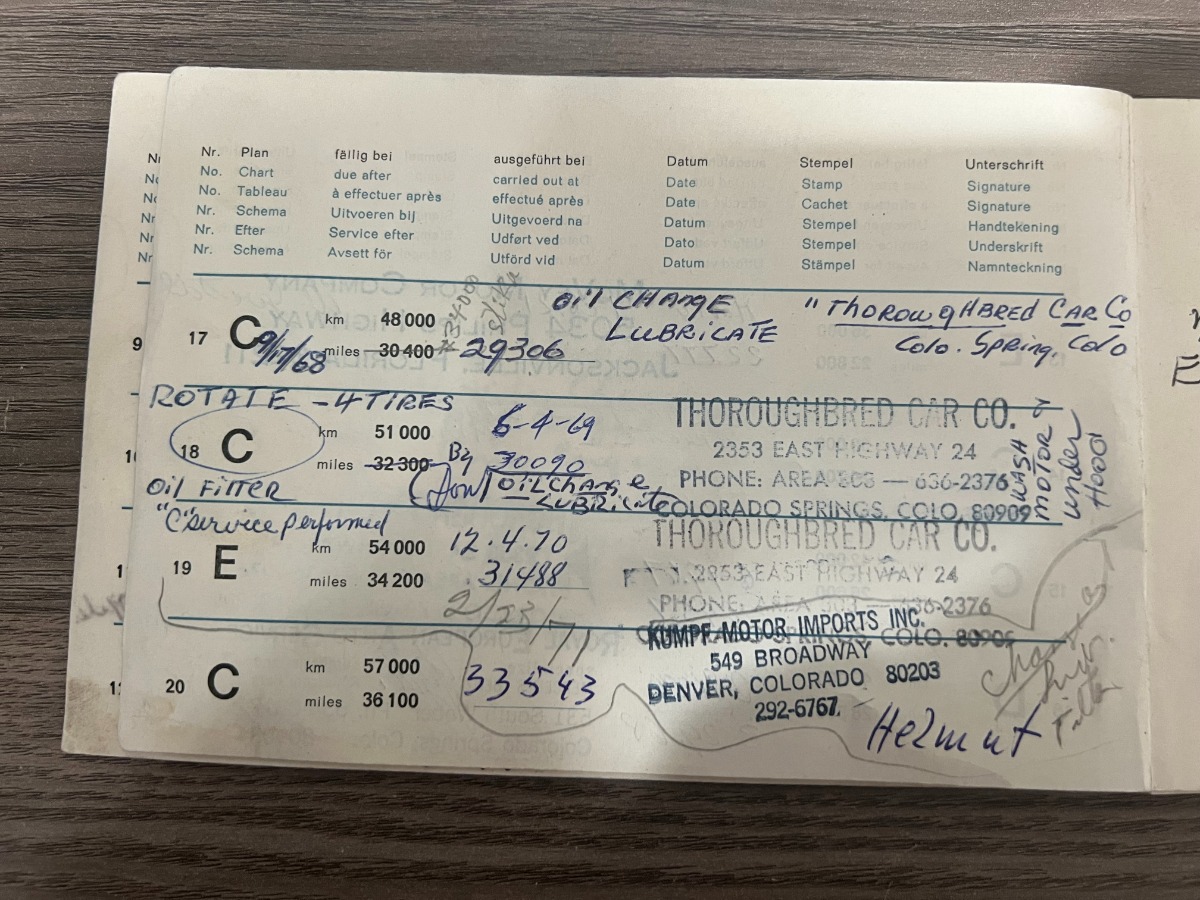 Nr. Plan fällig bei ausgeführt bei Datum Stempel Unterschrift
No. Chart due after carried out at Date Stamp Signature
No. Tableau à effectuer après effectué après Date Cachet Signature
Nr. Schema Uitvoeren bij Uitgevoerd na Datum Stempel Handtekening
Nr. Efter Service efter Udført ved Dato Stempel Underskrift
Nr. Schema Avsett för Utförd vid Datum Stämpel Namnteckning
9
17 C km 48 000 OiL CHANGE "THOROUGHBRED CAR CO
9/17/68 miles 30 400 29306 LUBRICATE Colo. Spring, Colo
ROTATE - 4 TIRES
18 C km 51 000 6-4-69
miles 32 300 By 30090
OiL CHange
LUBRicate
THOROUGHBRED CAR CO.
2353 EAST HIGHWAY 24
PHONE: AREA 303 — 636-2376
COLORADO SPRINGS, COLO. 80909
WASH
MOTOR &
under
HOOD
OiL FiLTER
"C" service performed
19 E km 54 000 12.4.70
miles 34 200 31488
THOROUGHBRED CAR CO.
2353 EAST HIGHWAY 24
PHONE: AREA 303 — 636-2376
COLO. 80909
20 C km 57 000
miles 36 100 33543
KUMPF MOTOR IMPORTS INC.
549 BROADWAY
DENVER, COLORADO 80203
292-6767.
Helmut
Filter